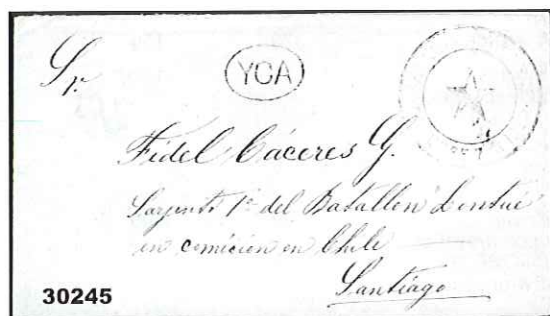 Sr.
YCA
Fidel Cáceres G.
Sarjento 1º del Batallon Lontué
en comicion en Chile
Santiago
30245